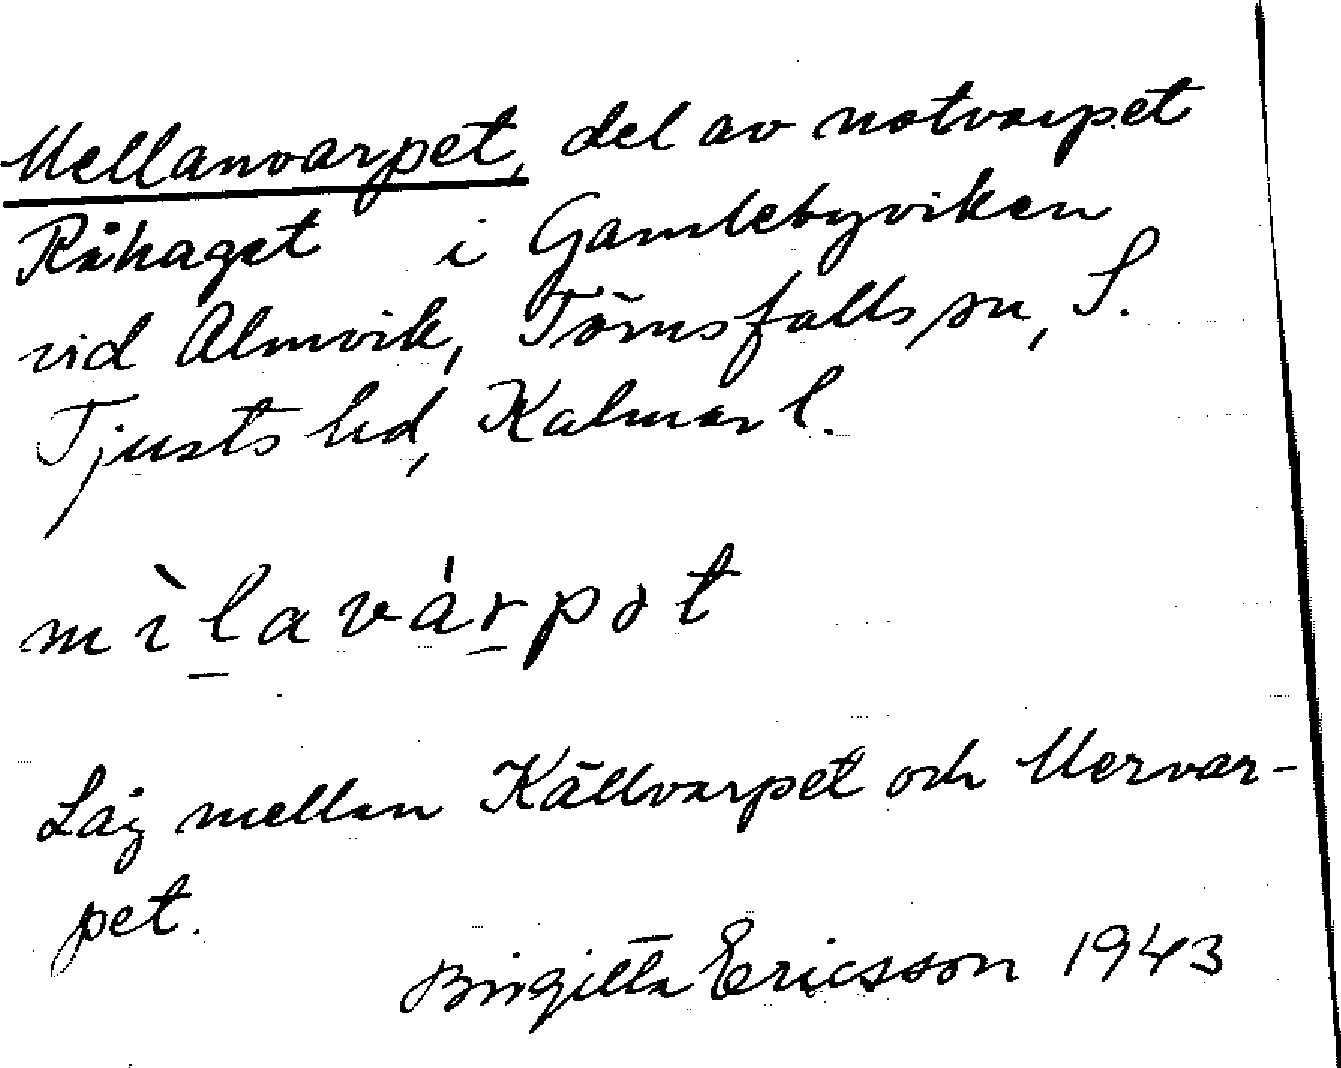 Mellanvarpet, del av notvarpet
Råhaget i Gamlebyviken
vid Almvik, Törnsfalls sn, S.
Tjusts hd, Kalmar l.
mìl̲avár̲pət
Låg mellan Källvarpet och Mervar-
pet.
Birgitta Ericsson 1943